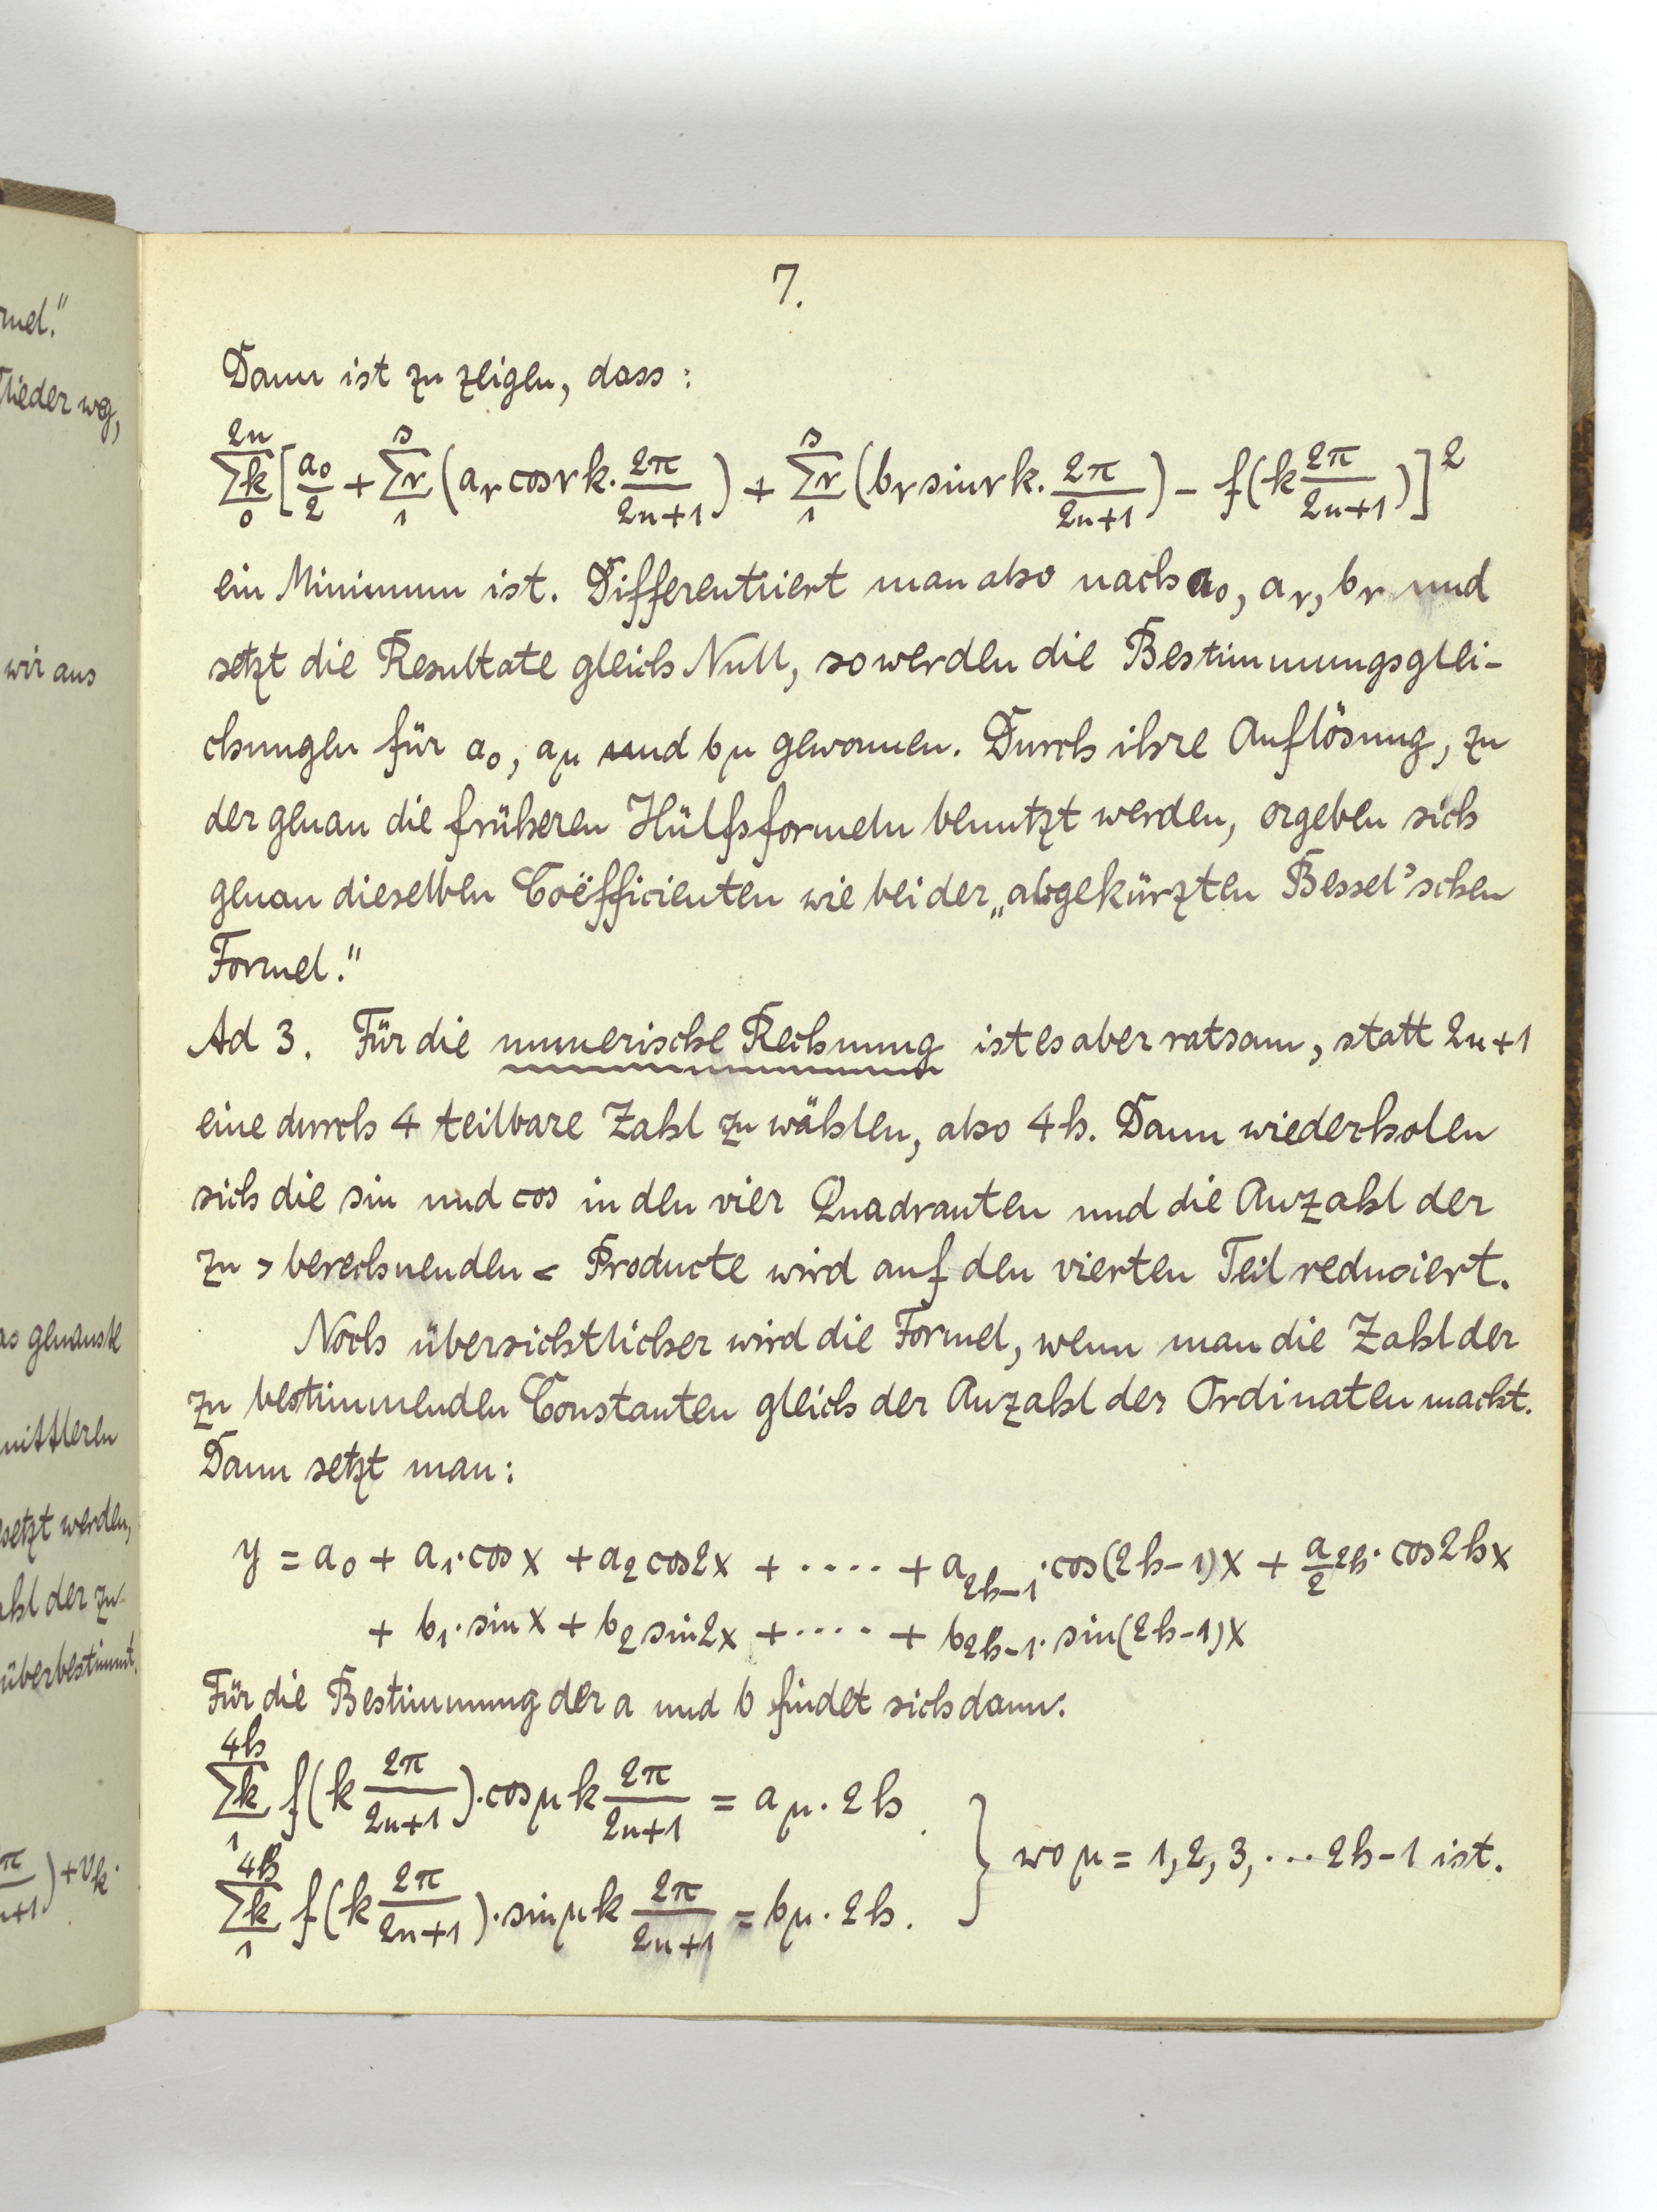 rmel."
Glieder weg,
wir aus
as genauste
mittleren
setzt werden,
ahl der zu-
überbestimmt.
π/n+1) + v_k.
7.
Dann ist zu zeigen, dass:
\sum_{0}^{2n}{}_k [\frac{a_0}{2} + \sum_{1}^{s}{}_r (a_r cos rk \cdot \frac{2π}{2n+1}) + \sum_{1}^{s}{}_r (b_r sin rk \cdot \frac{2π}{2n+1}) - f(k \frac{2π}{2n+1})]^2
ein Minimum ist. Differentiiert man also nach a_0, a_r, b_r und
setzt die Resultate gleich Null, so werden die Bestimmungsglei-
chungen für a_0, a_μ und b_μ gewonnen. Durch ihre Auflösung, zu
der genau die früheren Hülfsformeln benutzt werden, ergeben sich
genau dieselben Coëfficienten wie bei der „abgekürzten Bessel'schen
Formel."
Ad 3. Für die numerische Rechnung ist es aber ratsam, statt 2n+1
eine durch 4 teilbare Zahl zu wählen, also 4h. Dann wiederholen
sich die sin und cos in den vier Quadranten und die Anzahl der
zu > berechnenden < Producte wird auf den vierten Teil reduciert.
Noch übersichtlicher wird die Formel, wenn man die Zahl der
zu bestimmenden Constanten gleich der Anzahl der Ordinaten macht.
Dann setzt man:
y = a_0 + a_1 \cdot cos x + a_2 cos 2x + ···· + a_{2h-1} \cdot cos(2h-1)x + \frac{a}{2}_{2h} \cdot cos 2hx
+ b_1 \cdot sin x + b_2 sin 2x + ···· + b_{2h-1} \cdot sin(2h-1)x
Für die Bestimmung der a und b findet sich dann:
\sum_{1}^{4h}{}_k f(k \frac{2π}{2n+1}) \cdot cos μk \frac{2π}{2n+1} = a_μ \cdot 2h.
} wo μ = 1, 2, 3, ··· 2h-1 ist.
\sum_{1}^{4h}{}_k f(k \frac{2π}{2n+1}) \cdot sin μk \frac{2π}{2n+1} = b_μ \cdot 2h.